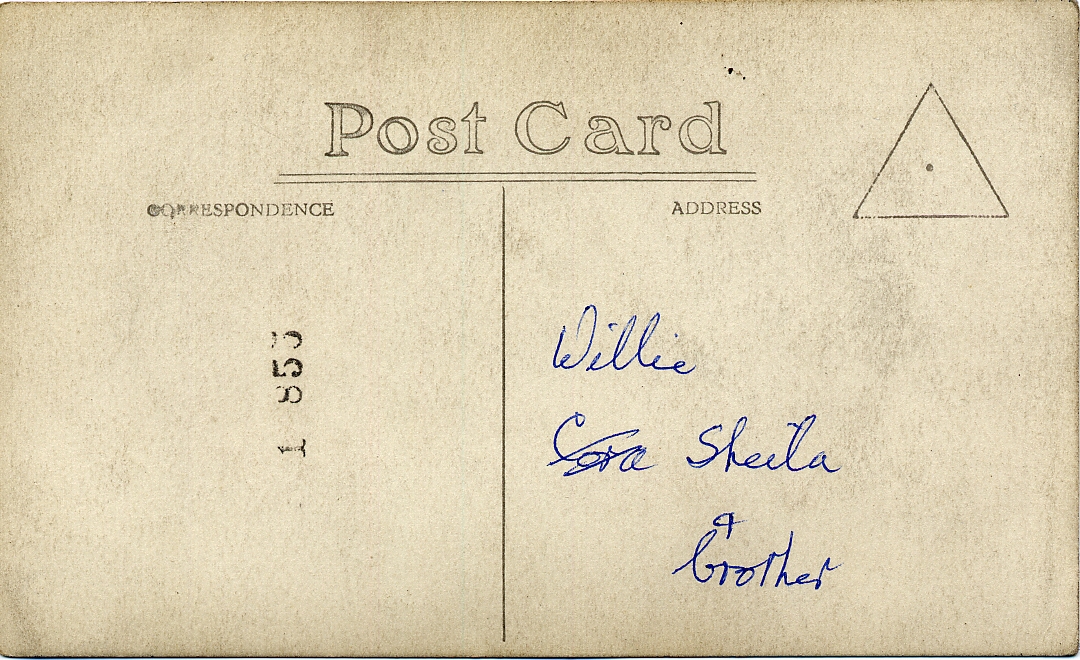 Post Card
CORRESPONDENCE
ADDRESS
1 853
Willie
Cora Sheila
+
brother